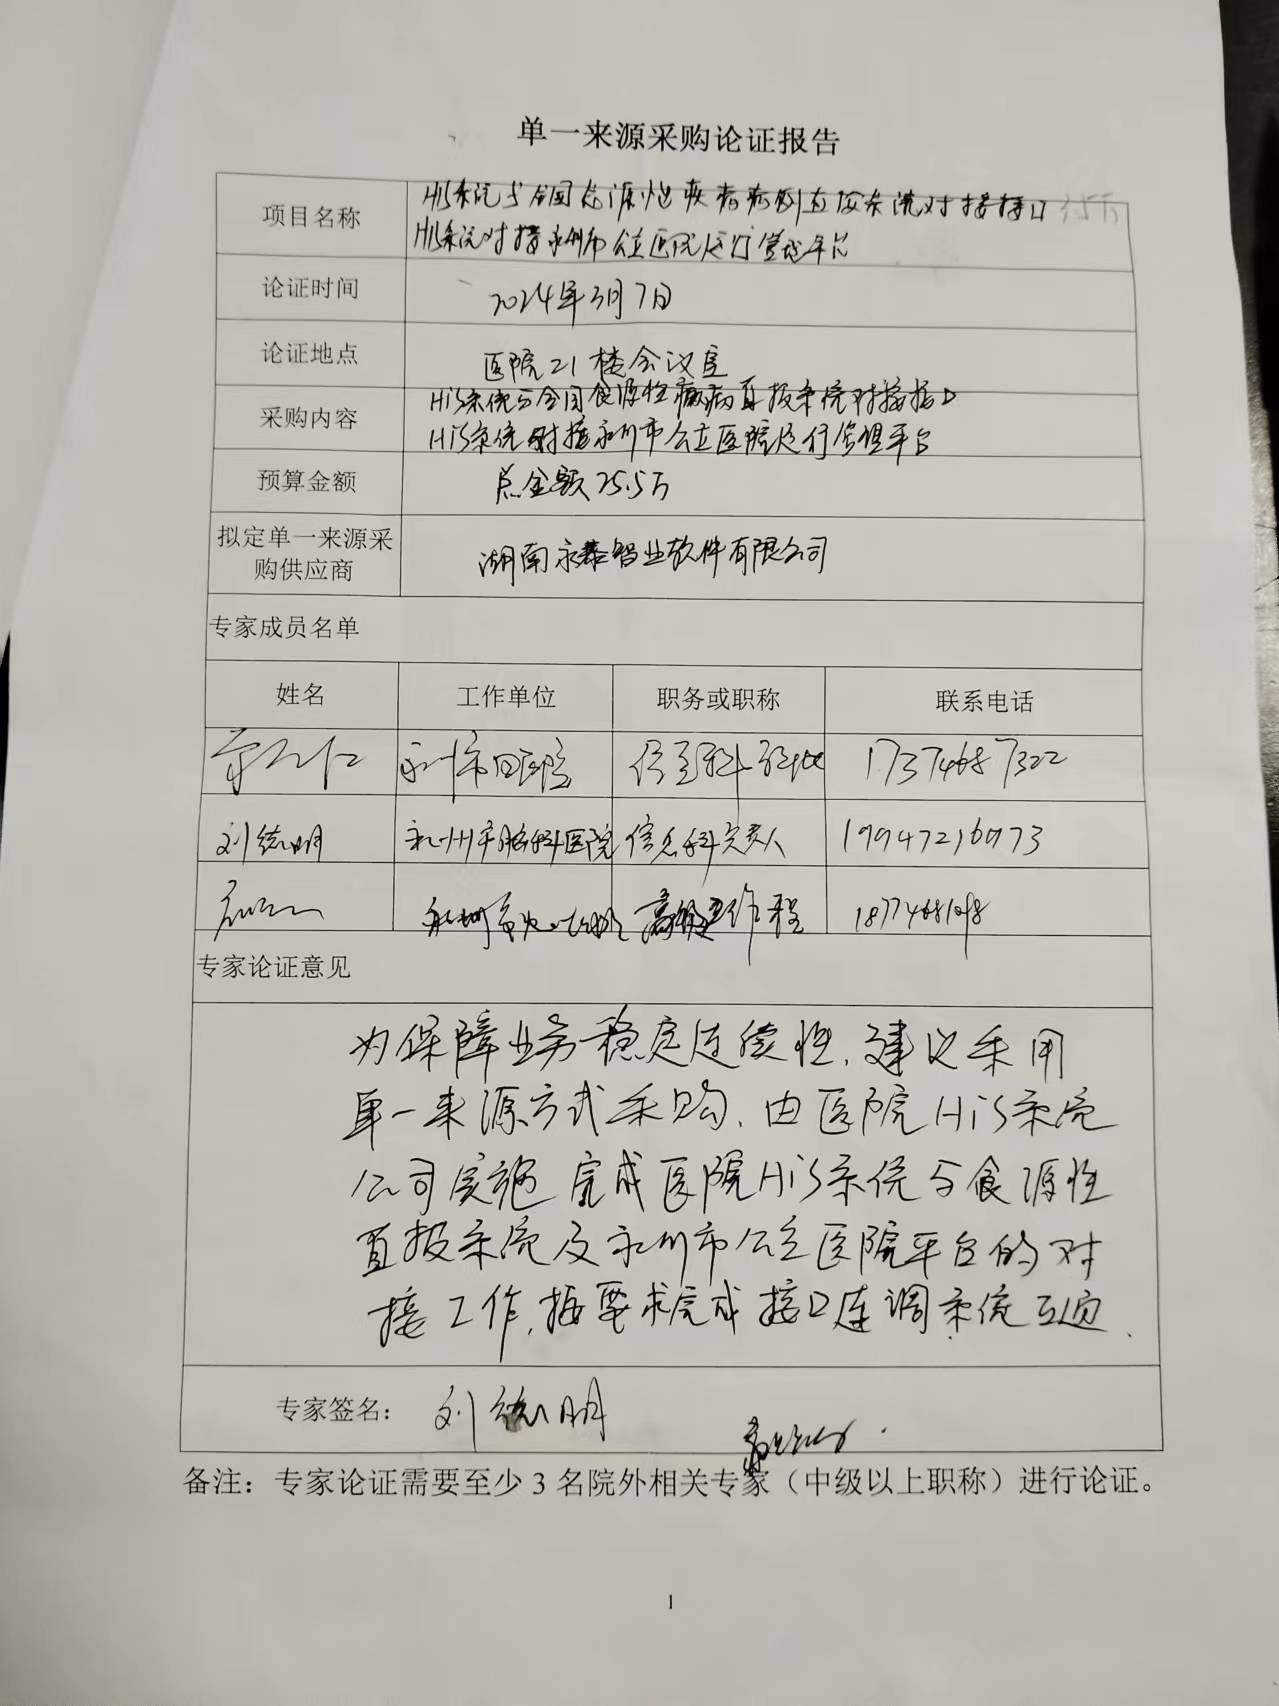 单一来源采购论证报告
项目名称
HIS系统与全国食源性疾病病例直报系统对接接口
HIS系统对接永州市公立医院运行管理平台
论证时间
2024年3月7日
论证地点
医院21楼会议室
采购内容
HiS系统与全国食源性疾病直报系统对接接口
HiS系统对接永州市公立医院运行管理平台
预算金额
总金额25.5万
拟定单一来源采
购供应商
湖南永泰智业软件有限公司
专家成员名单
姓名 工作单位 职务或职称 联系电话
永州市 医院 信息科 17374687322
刘德明 永州市脑科医院 信息科负责人 19947216973
永州市 高级工作程
专家论证意见
为保障业务稳定连续性,建议采用
单一来源方式采购,由医院HiS系统
公司实施 完成医院HiS系统与食源性
直报系统及永州市公立医院平台的对
接工作,按要求完成接口连调系统互通.
专家签名: 刘德明
备注:专家论证需要至少3名院外相关专家(中级以上职称)进行论证。
1